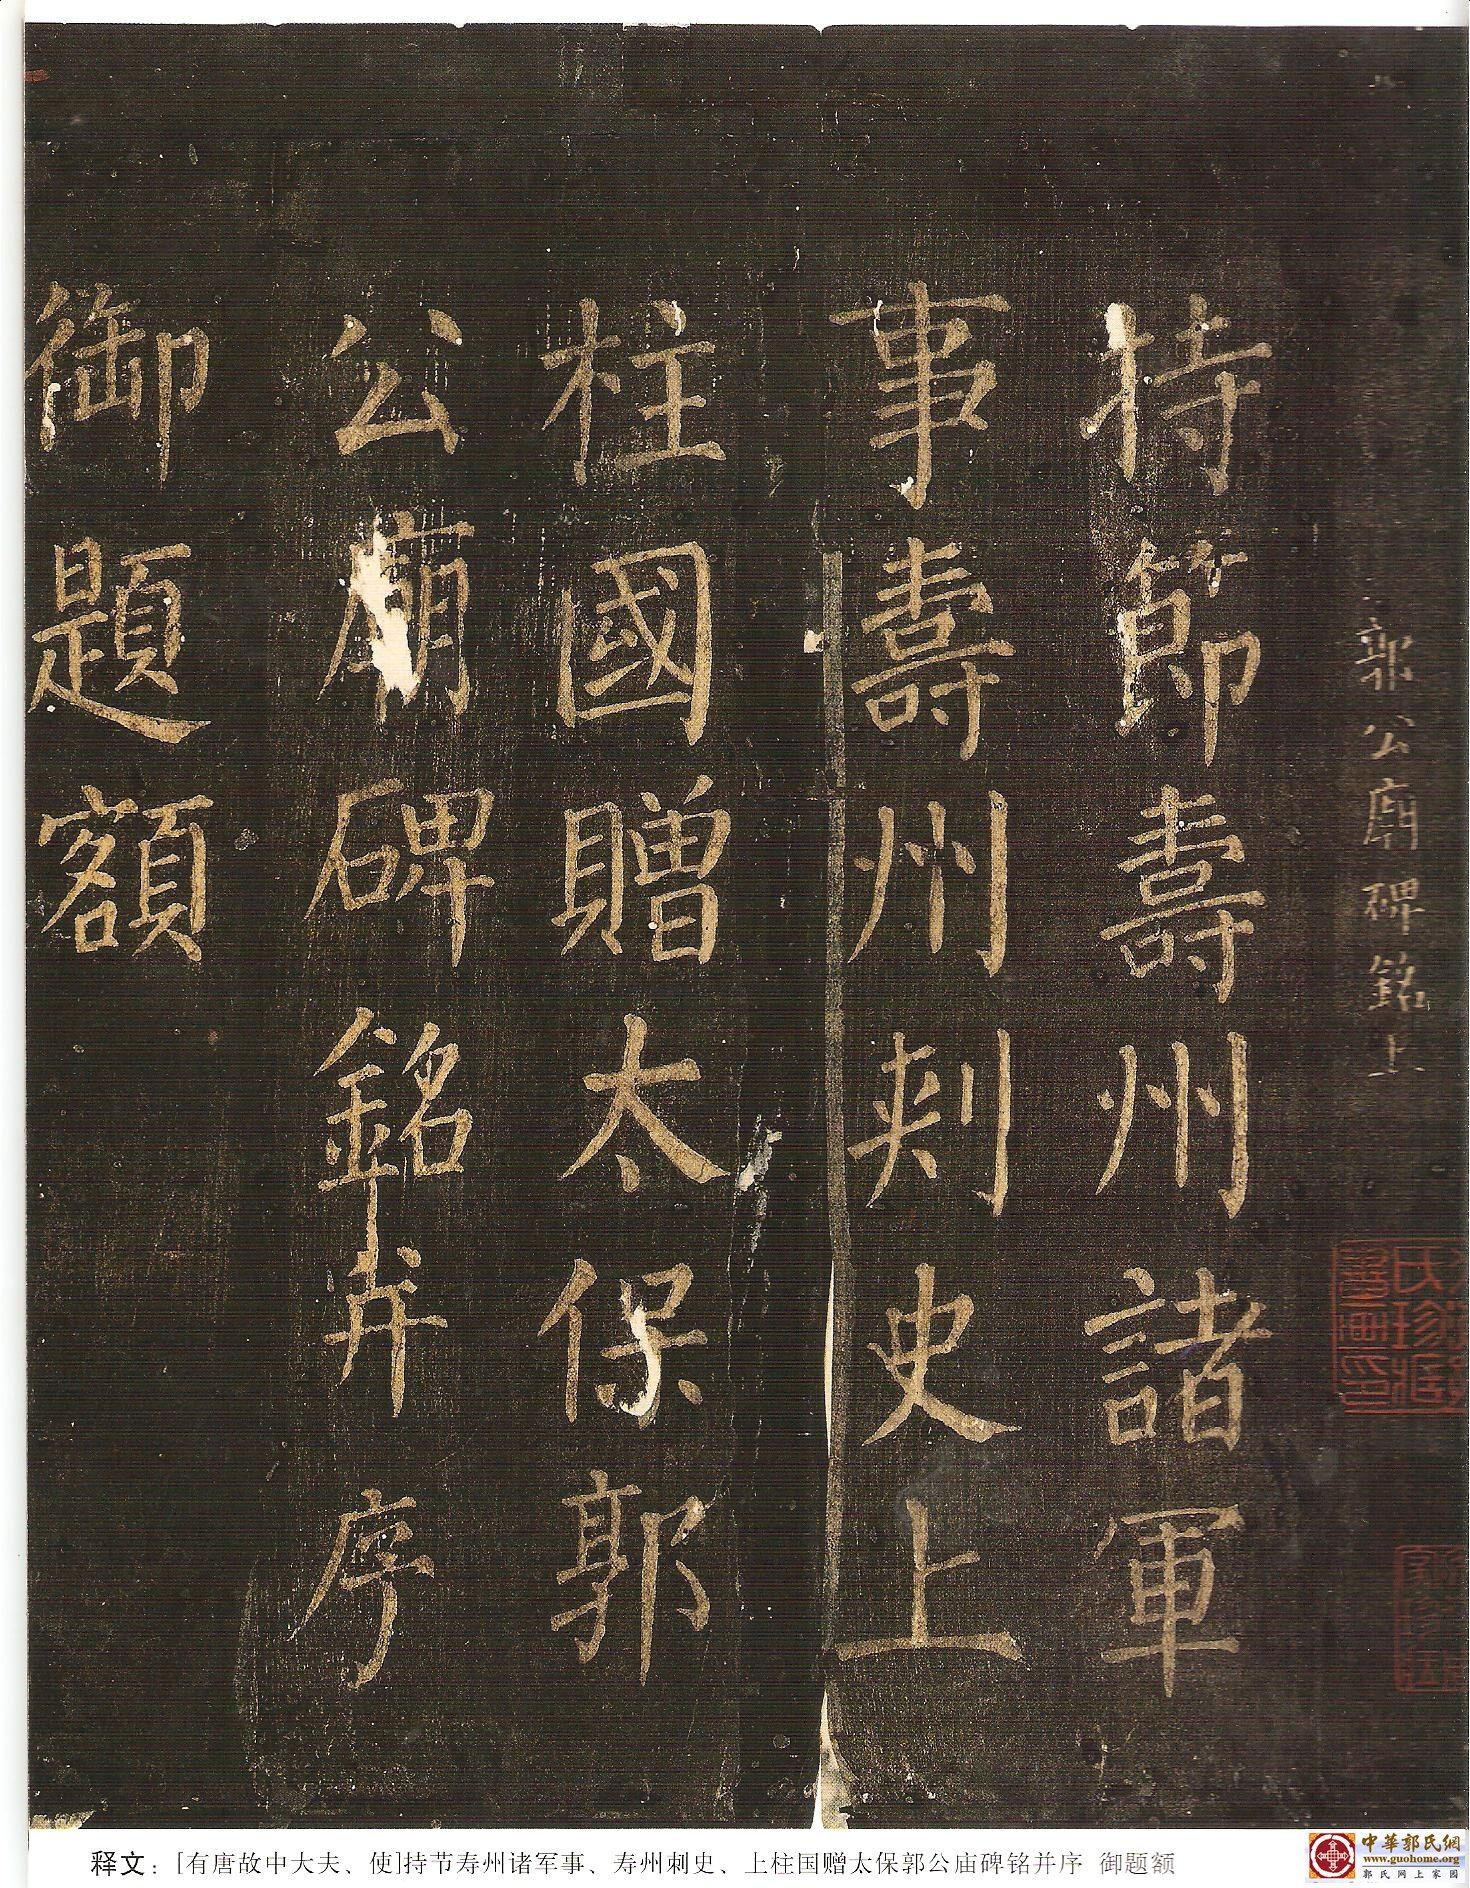 郭公廟碑銘上
持節壽州諸軍
事壽州刺史上
柱國贈太保郭
公廟碑銘并序
御題額
释文：[有唐故中大夫、使]持节寿州诸军事、寿州刺史、上柱国赠太保郭公庙碑铭并序 御题额
中華郭氏網
www.guohome.org
郭氏网上家园